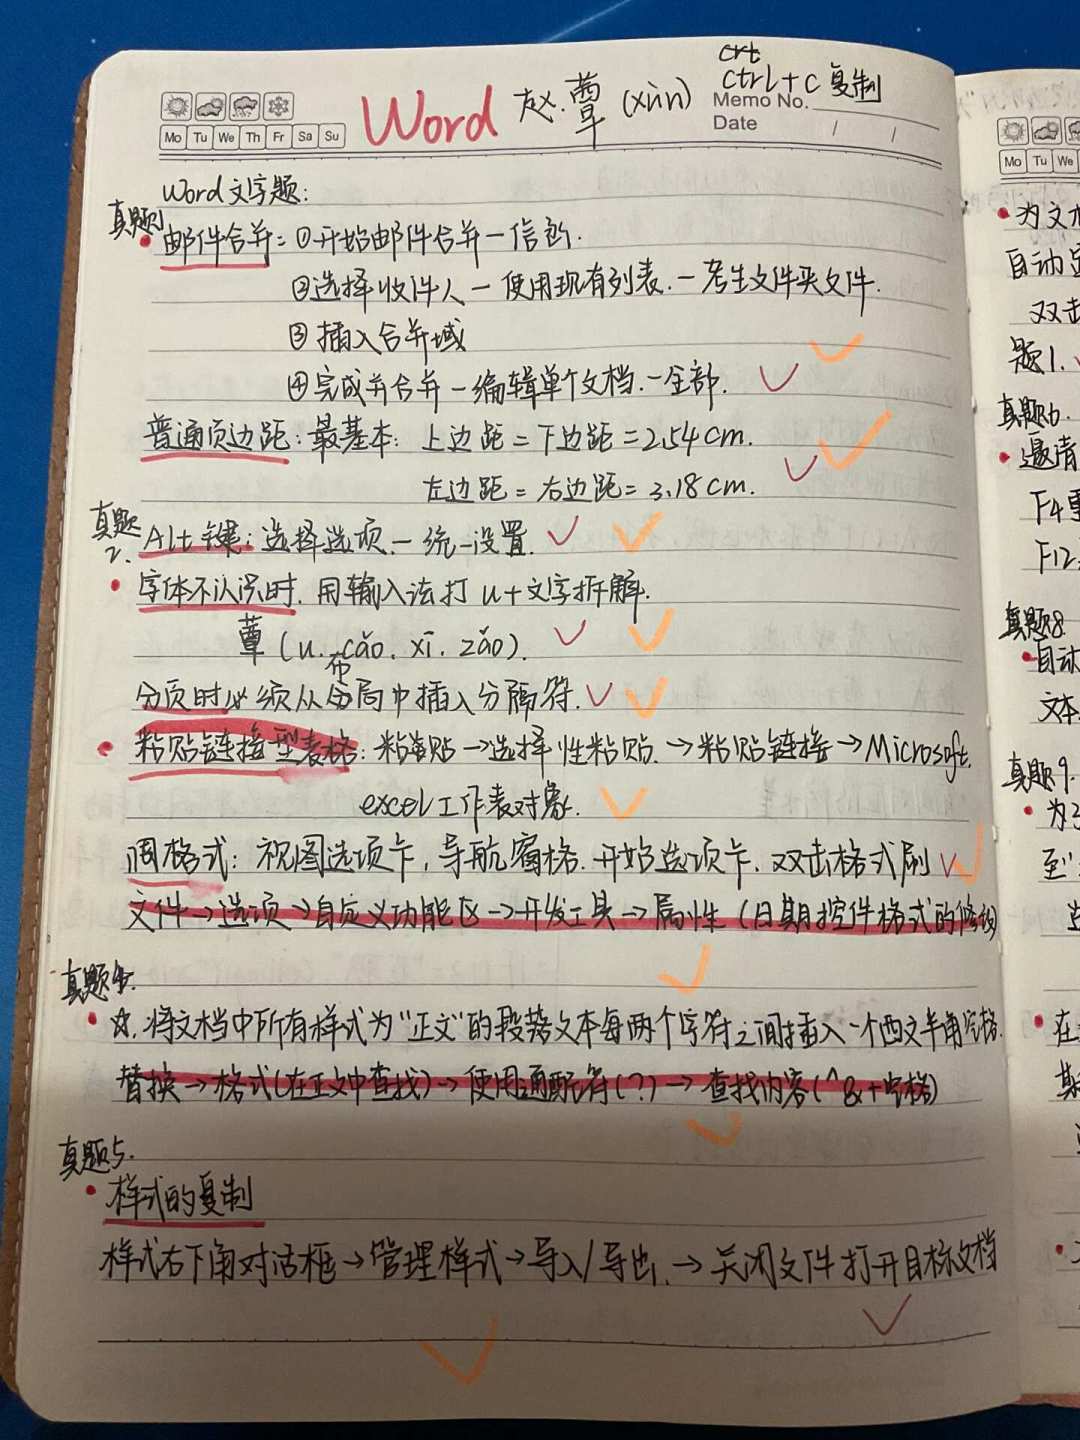 crt
Word 赵.蕈 (xùn) ctrl+c 复制
Memo No.
Mo Tu We Th Fr Sa Su
Date / /
Word文字题:
真题1
邮件合并: ①开始邮件合并—信函.
②选择收件人—使用现有列表.—考生文件夹文件.
③插入合并域
④完成并合并—编辑单个文档.—全部.
普通页边距: 最基本: 上边距=下边距=2.54cm.
左边距=右边距=3.18cm.
真题2.
Alt键: 选择选项—统一设置.
字体不认识时. 用输入法打 u+文字拆解.
蕈 (u. cǎo. xī. zǎo).
布
分页时必须从局中插入分隔符.
粘贴链接型表格: 粘贴→选择性粘贴.→粘贴链接→Microsoft.
excel工作表对象.
调格式: 视图选项卡, 导航窗格. 开始选项卡. 双击格式刷
文件→选项→自定义功能区→开发工具→属性 (日期控件格式的修改)
真题4.
☆. 将文档中所有样式为"正文"的段落文本每两个字符之间插入一个西文半角空格.
替换→格式(在正文中查找)→使用通配符(?)→查找内容(^&+空格)
真题5.
样式的复制
样式右下角对话框→管理样式→导入/导出.→关闭文件打开目标文档
Mo Tu We
为文
自动
双击
题1.
真题6.
邀请
F4重
F12
真题8.
自动
文本
真题9.
为
至
在